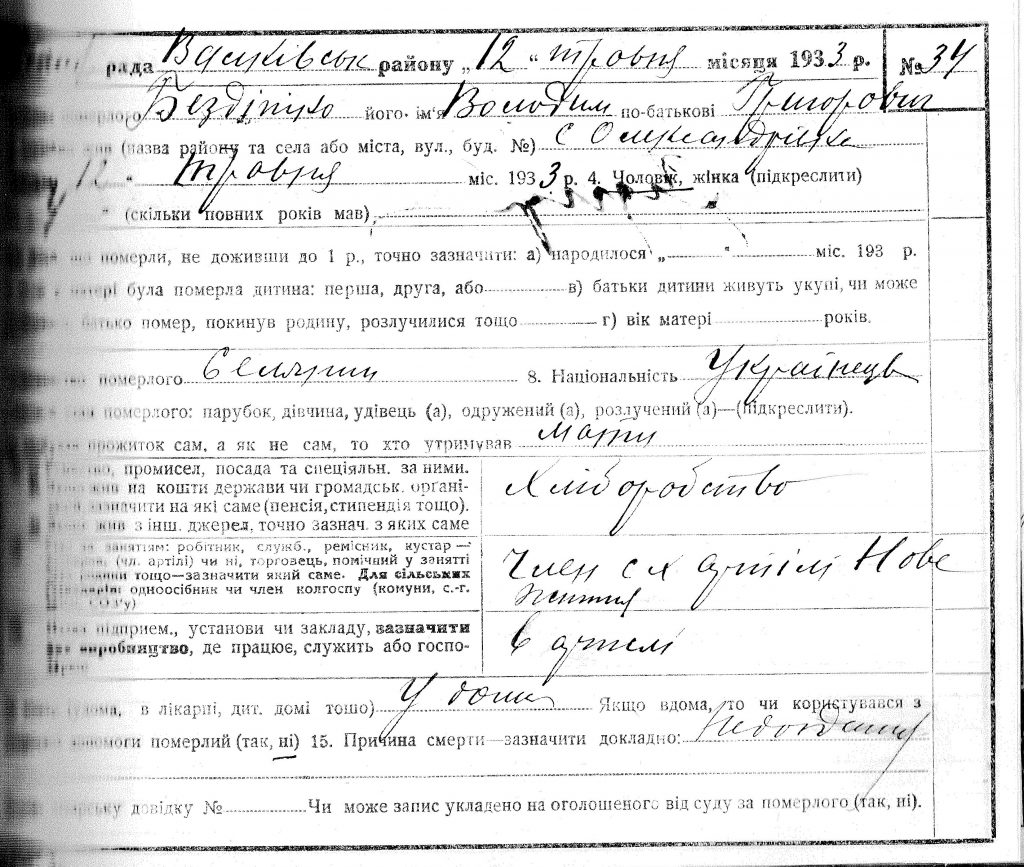 рада Васчківськ району „12 “ травня місяця 1933 р. №34
мерлого його ім'я Володим по-батькові Григорович
(назва району та села або міста, вул., буд. №) с
12 “ травня міс. 1933 р. 4. Чоловік, жінка (підкреслити)
“ (скільки повних років мав)
померли, не доживши до 1 р., точно зазначити: а) народилося „ “ міс. 193 р.
матері була померла дитина: перша, друга, або в) батьки дитини живуть укупі, чи може
батько помер, покинув родину, розлучилися тощо г) вік матері років.
померлого Селянин 8. Національність Українець
померлого: парубок, дівчина, удівець (а), одружений (а), розлучений (а)—(підкреслити).
прожиток сам, а як не сам, то хто утримував мати
промисел, посада та спеціяльн. за ними.
на кошти держави чи громадськ. органі-
зазначити на які саме (пенсія, стипендія тощо).
з інш. джерел, точно зазнач. з яких саме
Хліборобство
заняттям: робітник, служб., ремісник, кустар —
(чл. артілі) чи ні, торговець, помічний у занятті
тощо—зазначити який саме. Для сільських
одноосібник чи член колгоспу (комуни, с.-г.
СОЗ'у)
Член с х артілі Нове
життя
підприєм., установи чи закладу, зазначити
виробництво, де працює, служить або госпо-
В артелі
вдома, в лікарні, дит. домі тощо) У дома Якщо вдома, то чи користувався з
допомоги померлий (так, ні) 15. Причина смерти—зазначити докладно: Недоїдання
довідку № Чи може запис укладено на оголошеного від суду за померлого (так, ні).